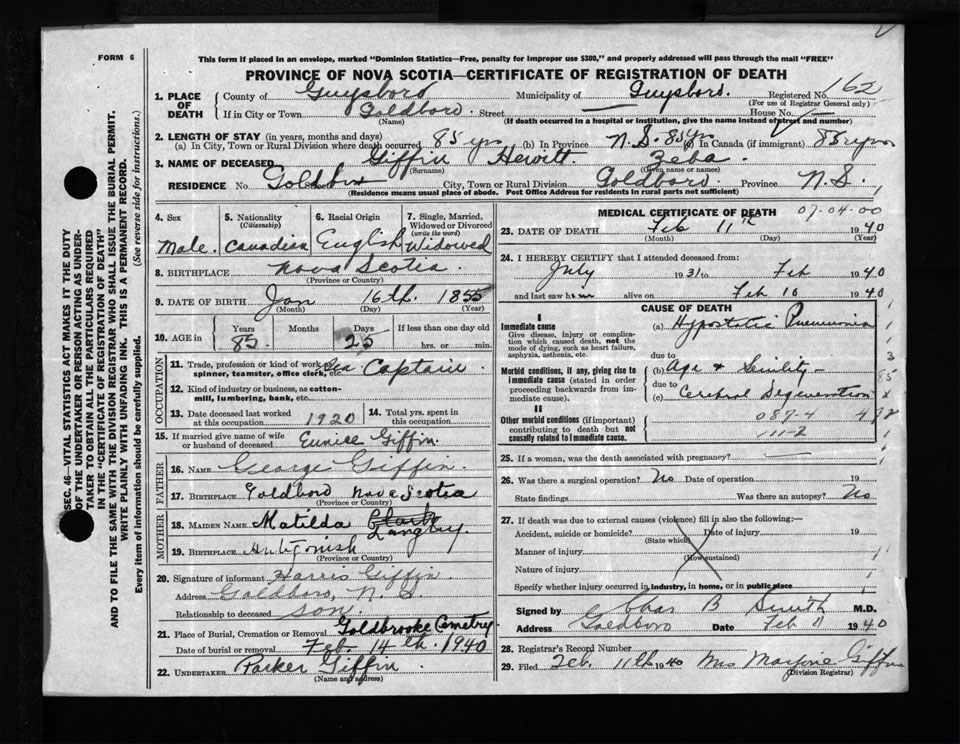 FORM 6
This form if placed in an envelope, marked "Dominion Statistics—Free, penalty for improper use $300," and properly addressed will pass through the mail "FREE"
PROVINCE OF NOVA SCOTIA—CERTIFICATE OF REGISTRATION OF DEATH
1. PLACE OF DEATH
County of Guysboro Municipality of Guysboro. Registered No. 162
(For use of Registrar General only)
If in City or Town Goldboro. Street — House No. —
(Name) (If death occurred in a hospital or institution, give the name instead of street and number)
2. LENGTH OF STAY (in years, months and days)
(a) In City, Town or Rural Division where death occurred 85 yrs (b) In Province N.S. 85 yrs (c) In Canada (if immigrant) 85 yrs
3. NAME OF DECEASED Giffin Hewitt Zeba.
(Surname) (Given name or names)
RESIDENCE No. Goldboro City, Town or Rural Division Goldboro. Province N.S.
(Residence means usual place of abode. Post Office Address for residents in rural parts not sufficient)
4. Sex Male.
5. Nationality (Citizenship) Canadian
6. Racial Origin English
7. Single, Married, Widowed or Divorced (write the word) Widowed
8. BIRTHPLACE Nova Scotia.
(Province or Country)
9. DATE OF BIRTH Jan 16th. 1855
(Month) (Day) (Year)
10. AGE in Years 85 Months Days 25 If less than one day old hrs. or min.
OCCUPATION
11. Trade, profession or kind of work as spinner, teamster, office clerk, etc. Sea Captain.
12. Kind of industry or business, as cotton-mill, lumbering, bank, etc.
13. Date deceased last worked at this occupation 1920
14. Total yrs. spent in this occupation
15. If married give name of wife or husband of deceased Eunice Giffin.
FATHER
16. NAME George Giffin.
17. BIRTHPLACE Goldboro Nova Scotia
(Province or Country)
MOTHER
18. MAIDEN NAME Matilda Clark Langley.
19. BIRTHPLACE Antigonish
(Province or Country)
20. Signature of informant Harris Giffin.
Address Goldboro, N.S.
Relationship to deceased son.
21. Place of Burial, Cremation or Removal Goldbrooke Cemetry.
Date of burial or removal Feb. 14th. 1940
22. UNDERTAKER Parker Giffin.
(Name and address)
MEDICAL CERTIFICATE OF DEATH 07-04-00
23. DATE OF DEATH Feb 11th 1940
(Month) (Day) (Year)
24. I HEREBY CERTIFY that I attended deceased from:
July 1931 to Feb 1940
and last saw him alive on Feb 10 1940
CAUSE OF DEATH
I
Immediate cause
Give disease, injury or complication which caused death, not the mode of dying, such as heart failure, asphyxia, asthenia, etc.
(a) Hypostatic Pneumonia
due to
Morbid conditions, if any, giving rise to immediate cause (stated in order proceeding backwards from immediate cause).
(b) Age & Senility —
due to
(c) Cerebral Degeneration
II
Other morbid conditions (if important) contributing to death but not causally related to immediate cause.
087-4
111-2
25. If a woman, was the death associated with pregnancy? —
26. Was there a surgical operation? No Date of operation 19
State findings Was there an autopsy? No
27. If death was due to external causes (violence) fill in also the following:—
Accident, suicide or homicide? Date of injury 19
(State which)
Manner of injury
(How sustained)
Nature of injury
Specify whether injury occurred in industry, in home, or in public place
Signed by Chas B Smith M.D.
Address Goldboro Date Feb 11 1940
28. Registrar's Record Number
29. Filed Feb. 11th 1940 Mrs Marjorie Giffin
(Division Registrar)
SEC. 46—VITAL STATISTICS ACT MAKES IT THE DUTY
OF THE UNDERTAKER OR PERSON ACTING AS UNDER-
TAKER TO OBTAIN ALL THE PARTICULARS REQUIRED
IN THE "CERTIFICATE OF REGISTRATION OF DEATH"
AND TO FILE THE SAME WITH THE DIVISION REGISTRAR WHO SHALL ISSUE THE BURIAL PERMIT.
WRITE PLAINLY WITH UNFADING INK. THIS IS A PERMANENT RECORD.
Every item of information should be carefully supplied. (See reverse side for instructions.)